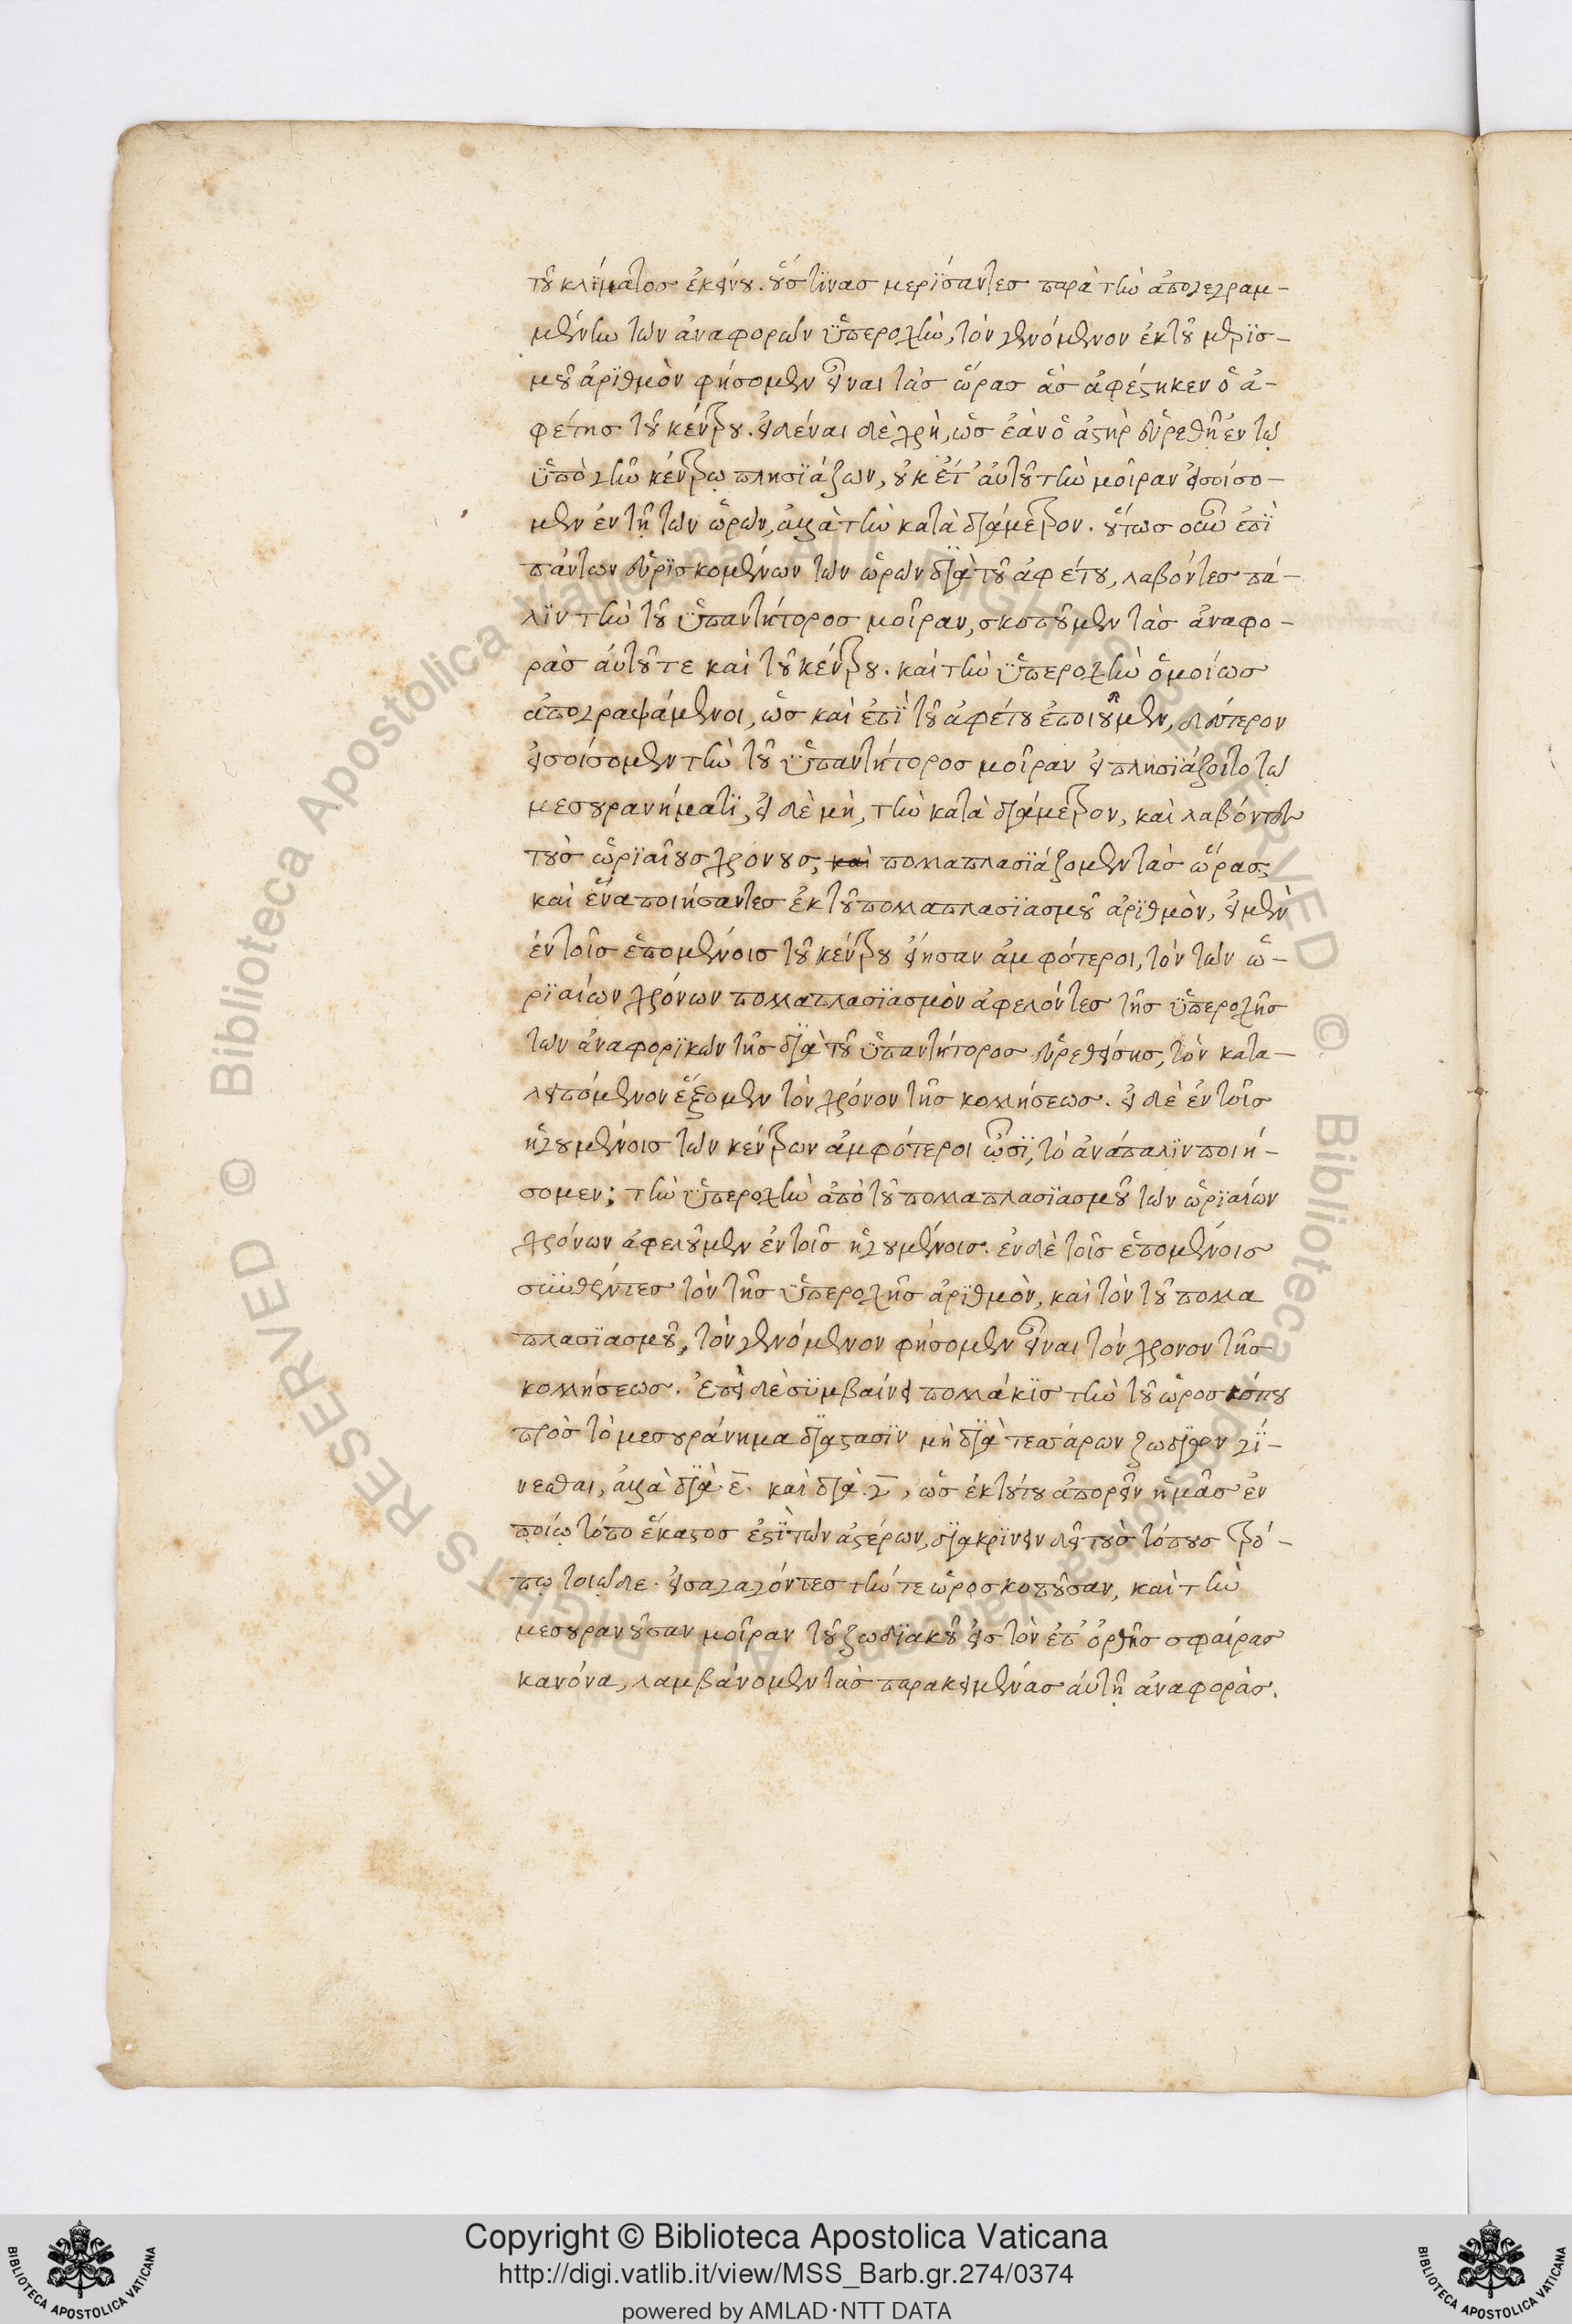 τοῦ κλίματος ἐκείνου. οὕς τινας μερίσαντες παρὰ τὴν ἀπογεγραμ-
μένην τῶν ἀναφορῶν ὑπεροχὴν, τὸν γενόμενον ἐκ τοῦ μερισ-
μοῦ ἀριθμὸν φήσομεν εἶναι τὰς ὥρας ἃς ἀφέστηκεν ὁ ἀ-
φέτης τοῦ κέντρου. εἰδέναι δὲ χρὴ, ὡς ἐὰν ὁ ἀστὴρ εὑρεθῇ ἐν τῷ
ὑπὸ γῆν κέντρῳ πλησιάζων, οὐκέτ' αὐτοῦ τὴν μοῖραν εἰσοίσο-
μεν ἐν τῇ τῶν ὡρῶν, ἀλλὰ τὴν κατὰ διάμετρον. οὕτως οὖν ἐπὶ
πάντων εὑρισκομένων τῶν ὡρῶν διὰ τοῦ ἀφέτου, λαβόντες πά-
λιν τὴν τοῦ ὑπαντήτορος μοῖραν, σκοποῦμεν τὰς ἀναφο-
ρὰς αὐτοῦ τε καὶ τοῦ κέντρου. καὶ τὴν ὑπεροχὴν ὁμοίως
ἀπογραψάμενοι, ὡς καὶ ἐπὶ τοῦ ἀφέτου ἐποιοῦμεν, δεύτερον
εἰσοίσομεν τὴν τοῦ ὑπαντήτορος μοῖραν εἰ πλησιάζοι τὸ τῷ
μεσουρανήματι, εἰ δὲ μὴ, τὴν κατὰ διάμετρον, καὶ λαβόντες
τοὺς ὡριαίους χρόνους, καὶ πολλαπλασιάζομεν τὰς ὥρας
καὶ ἕνα ποιήσαντες ἐκ τοῦ πολλαπλασιασμοῦ ἀριθμὸν, εἰ μὲν
ἐν τοῖς ἑπομένοις τοῦ κέντρου εἴησαν ἀμφότεροι, τὸν τῶν ὡ-
ριαίων χρόνων πολλαπλασιασμὸν ἀφελόντες τῆς ὑπεροχῆς
τῶν ἀναφορικῶν τῆς διὰ τοῦ ὑπαντήτορος εὑρεθείσης, τὸν κατα-
λειπόμενον ἕξομεν τὸν χρόνον τῆς κολλήσεως. εἰ δὲ ἐν τοῖς
ἡγουμένοις τῶν κέντρων ἀμφότεροι ὦσι, τὸ ἀνάπαλιν ποιή-
σομεν; τὴν ὑπεροχὴν ἀπὸ τοῦ πολλαπλασιασμοῦ τῶν ὡριαίων
χρόνων ἀφελοῦμεν ἐν τοῖς ἡγουμένοις. ἐν δὲ τοῖς ἑπομένοις
συνθέντες τὸν τῆς ὑπεροχῆς ἀριθμὸν, καὶ τὸν τοῦ πολλα
πλασιασμοῦ, τὸν γενόμενον φήσομεν εἶναι τὸν χρονον τῆς
κολλήσεως. Ἐπεὶ δὲ συμβαίνει πολλάκις τὴν τοῦ ὡροσκόπου
πρὸς τὸ μεσουράνημα διάστασιν μὴ διὰ τεσσάρων ζωδίων γί-
νεσθαι, ἀλλὰ διὰ ε̄. καὶ διὰ γ̄, ὡς ἐκ τούτου ἀπορεῖν ἡμᾶς ἐν
ποίῳ τόπο ἕκαστος ἐστὶ τῶν ἀστέρων, διακρίνειν δεῖ τοὺς τόπους τρό-
πῳ τοιῷδε. εἰσαγαγόντες τήν τε ὡροσκοποῦσαν, καὶ τὴν
μεσουρανοῦσαν μοῖραν τοῦ ζωδιακοῦ εἰς τὸν ἐπ' ὀρθῆς σφαίρας
κανόνα, λαμβάνομεν τὰς παρακειμένας αὐτῇ ἀναφοράς.
Copyright © Biblioteca Apostolica Vaticana
http://digi.vatlib.it/view/MSS_Barb.gr.274/0374
powered by AMLAD·NTT DATA